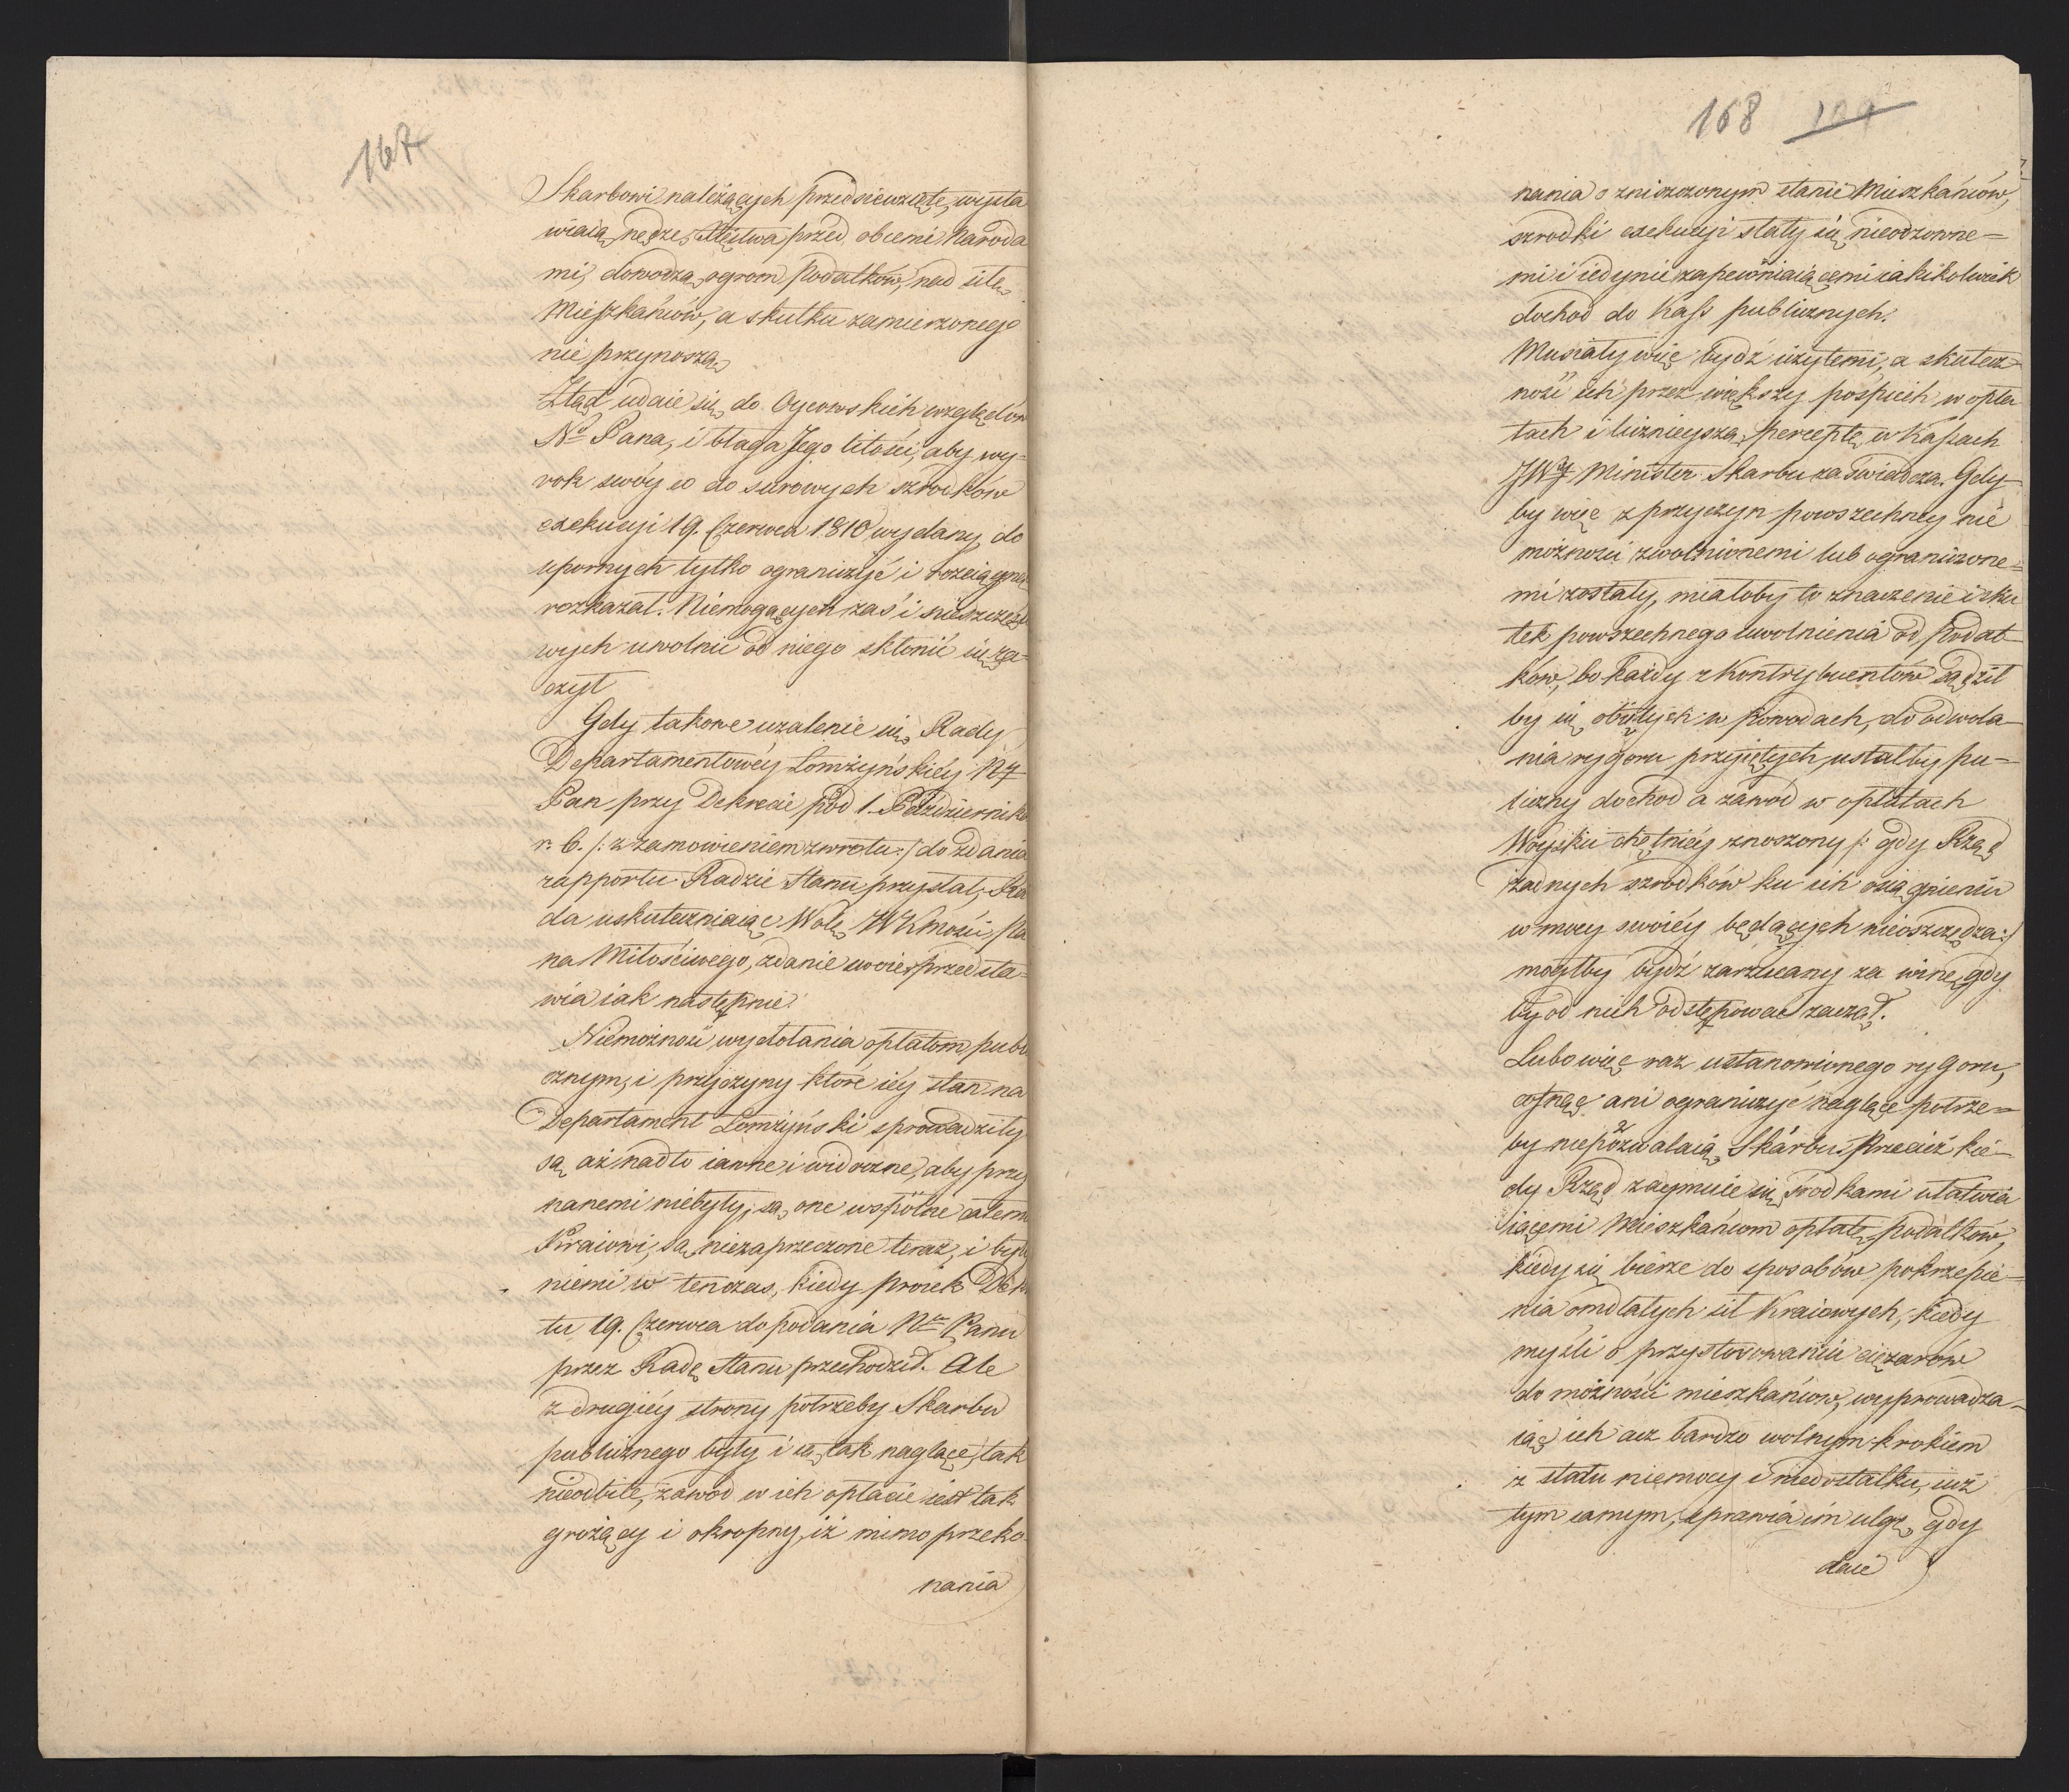 167
Skarbowi należących przedsiewzięte, wysta
wiaią nędzę Xięstwa przed obcemi Naroda
mi, dowodzą ogrom Podatków, nad siłę
Mieszkańców, a skutku zamierzonego
nie przynoszą
Ztąd udaie się do Oycowskich względów
No Pana, i błaga Jego litości, aby wy-
rok swóy co do surowych szrodków
exekucyi 19. Czerwca 1810 wydany, do
upornych tylko ograniczyć i rozciągnąć
rozkazał. Niemogących zaś i nieszczęśl
wych uwolnić od niego skłonić się ra-
czył
Gdy takowe użalenie się Rady
Departamentowéy Łomżyńskiéy NJ
Pan przy Dekrecie pod 1. Października
r. b. /: z zamowieniem zwrotu :/ do zdania
rapportu Radzie Stanu przysłał, Ra
da uskuteczniaiąc Wolę WKMości, Pa
na Miłościwego, zdanie swoie przedsta-
wia iak następnie.
Niemożność wydołania opłatom publi
cznym, i przyczyny które iéy stan na
Departament Łomżyński sprowadziły
są aż nadto iawne i widoczne, aby przy
nanemi niebyły, są one wspólne całemu
Kraiowi, są niezaprzeczone teraz, i były
niemi w tenczas, kiedy proiekt Dekre
tu 19. Czerwca do podania No Panu
przez Radę Stanu przechodził. Ale
z drugiéy strony potrzeby Skarbu
publicznego były i są tak naglące, tak
nieodbite, zawód w ich opłacie iest tak
grożący i okropny, iż mimo przeko-
nania
168 109
nania o zniszczonym stanie Mieszkańców,
szrodki exekucyi stały się nieodzowne=
mi i iedynie zapewniaiącemi iakikolwiek
dochod do Kass publicznych.
Musiały więc bydź użytemi, a skutecz-
ność ich przez większy pośpiech w opła
tach i licznieyszą perceptę w Kassach
JWJ Minister Skarbu zaświadcza. Gdy-
by więc z przyczyn powszechney nie
możności zwolnionemi lub ograniczone=
mi zostały, miałoby to znaczenie i sku
tek powszechnego uwolnienia od Podat-
ków, bo każdy z Kontrybuentów sądził
by się obiętych w powodach, do odwoła-
nia rygoru przyiętych, ustałby pu=
bliczny dochod a zawód w opłatach
Woysku chętniéy znoszony /: gdy Rząd
żadnych szrodków ku ich osiągnieniu
w mocy swoiéy będących nieoszczędza :/
mógłby bydź zarzucany za winę, gdy
by od nich odstępować zaczął.
Lubo więc raz ustanowionego rygoru,
cofnąć ani ograniczyć naglące potrze=
by niepozwalaią Skarbu. Przecież kie-
dy Rząd zaymuie się środkami ułatwia
iącemi Mieszkańcom opłatę podatków,
kiedy się bierze do sposobów pokrzepie=
nia omdlałych sił Kraiowych, kiedy
myśli o przystosowaniu ciężarów
do możności mieszkańców, wyprowadza-
iąc ich acz bardzo wolnym krokiem
z statu niemocy i niedostatku, iuż
tym samym, sprawia im ulgę, gdy
daie